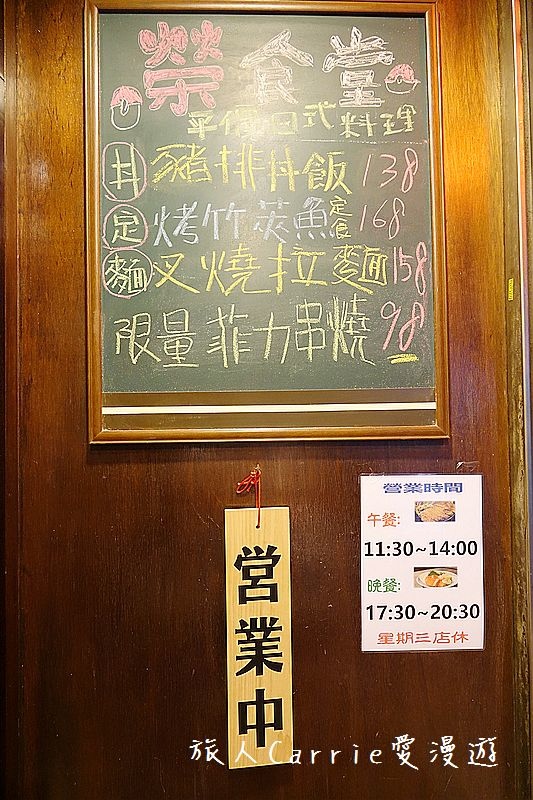 榮食堂
平價日式料理
丼 豬排丼飯 138
定 烤竹筴魚定食 168
麵 叉燒拉麵 158
限量菲力串燒 98
営業中
營業時間
午餐:
11:30~14:00
晚餐:
17:30~20:30
星期三店休
旅人Carrie愛漫遊